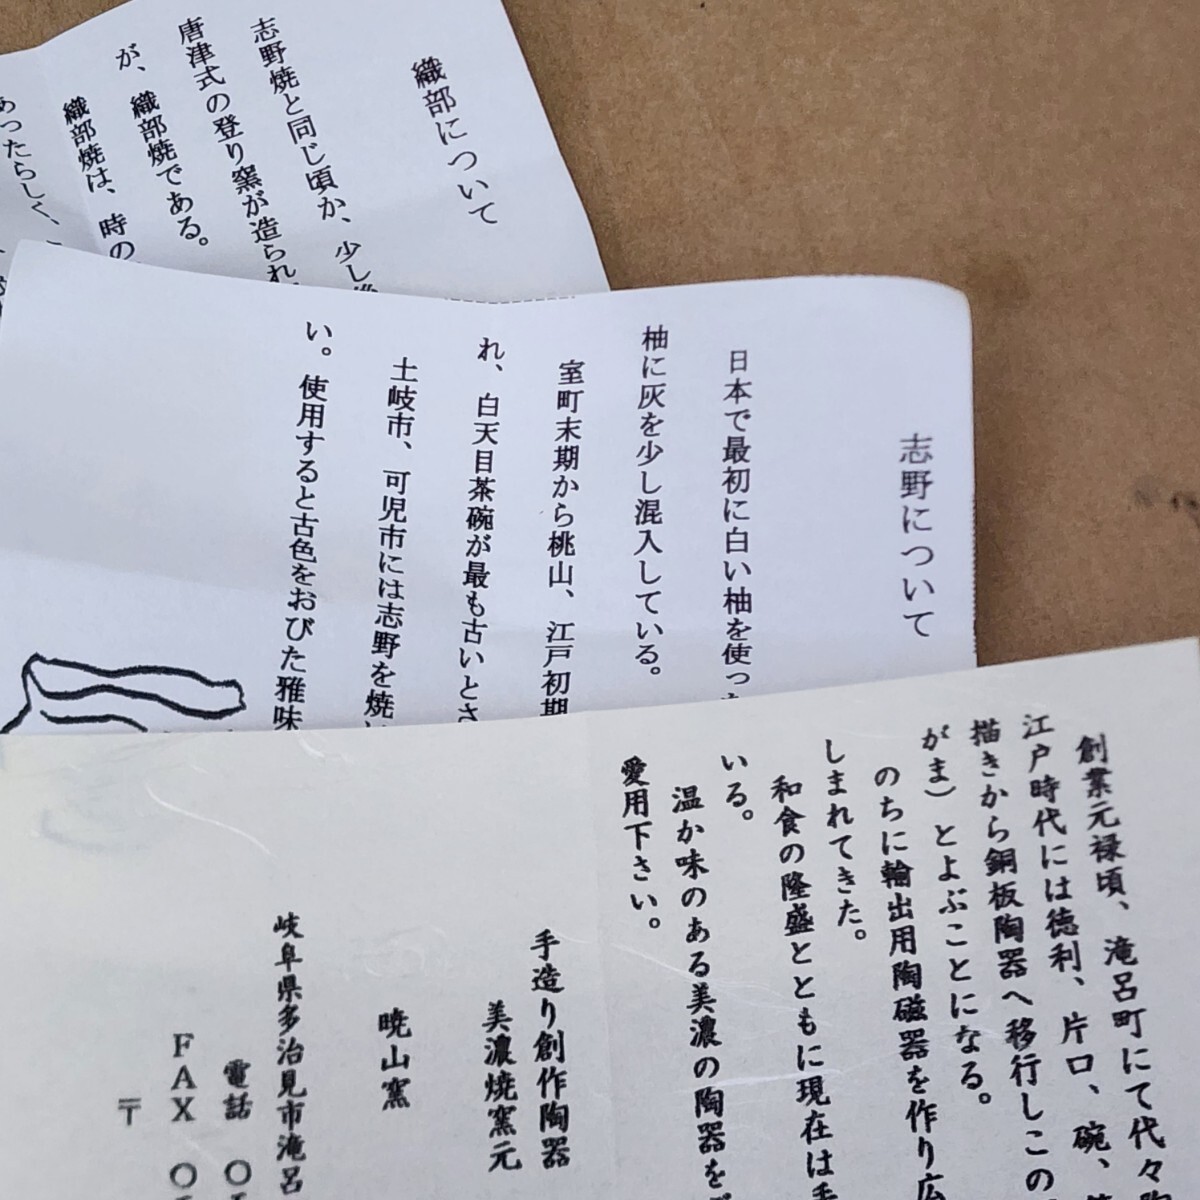 織部について
志野焼と同じ頃か、少し
唐津式の登り窯が造られ
が、織部焼である。
織部焼は、時の
あったらしく、
志野について
日本で最初に白い柚を使った
柚に灰を少し混入している。
室町末期から桃山、江戸初期
れ、白天目茶碗が最も古いとさ
土岐市、可児市には志野を焼
い。使用すると古色をおびた雅味
創業元禄頃、滝呂町にて代々
江戸時代には徳利、片口、碗、
描きから銅板陶器へ移行しこの
がま）とよぶことになる。
のちに輸出用陶磁器を作り広
しまれてきた。
和食の隆盛とともに現在は手
いる。
温か味のある美濃の陶器を
愛用下さい。
手造り創作陶器
美濃焼窯元
暁山窯
岐阜県多治見市滝呂
電話 〇
FAX 〇
〒